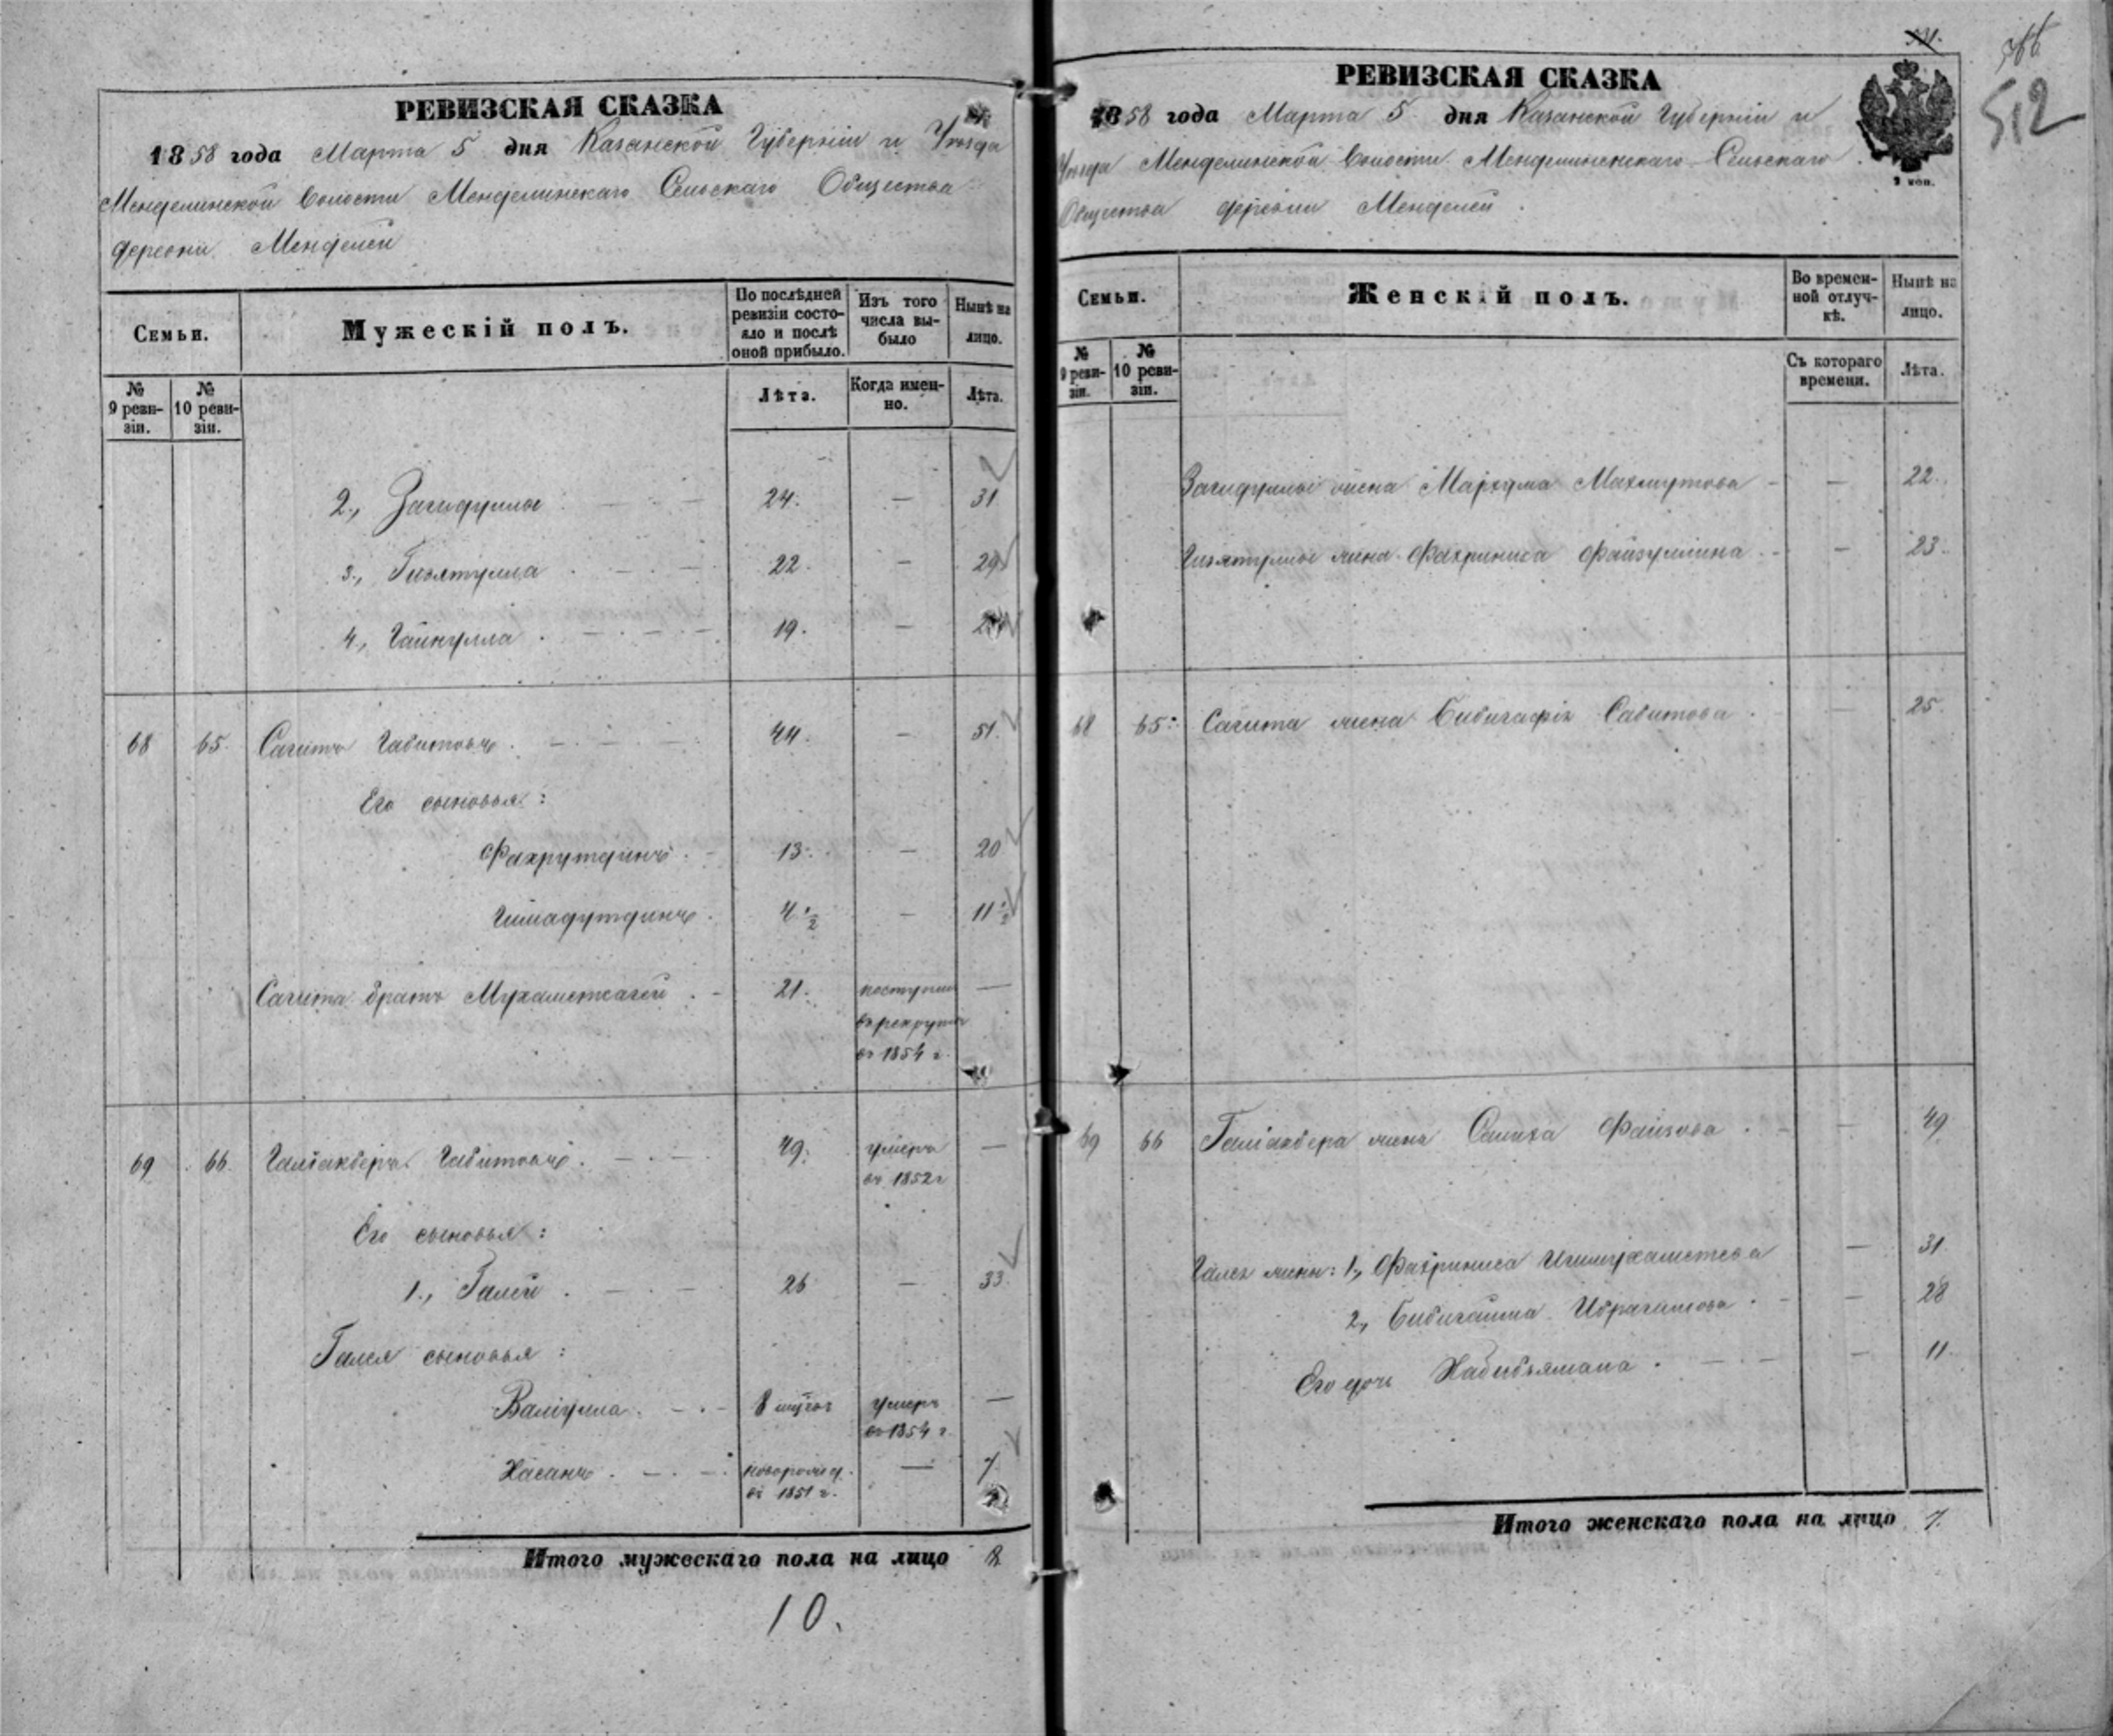 РЕВИЗСКАЯ СКАЗКА
1858 года Марта 5 дня Казанской Губерніи и Уезда
Менделинской Волости Менделинскаго Сельскаго Общества
деревни Менделей
Семьи.
Мужескій полъ.
По послѣдней ревизіи состояло и послѣ оной прибыло.
Изъ того числа выбыло
Нынѣ на лицо.
№ 9 ревизіи.
№ 10 ревизіи.
Лѣта.
Когда именно.
Лѣта.
2., Загидулла 24. — 31
3., Гизятулла 22. — 29
4., Гайнулла 19. —
68 65. Сагитъ Габитовъ 44. — 51.
Его сыновья:
Фахрутдинъ 13. — 20
Гимадутдинъ 4 1/2 — 11 1/2
Сагита братъ 21. поступилъ —
въ рекруты
въ 1854 г.
69 66. Галіакберъ Габитовъ 49. умеръ —
въ 1852 г
Его сыновья:
1., Галей 26 — 33.
Галея сыновья:
Валіулла 8 умеръ —
въ 1854 г.
Хасанъ новорожд. — 7
въ 1851 г.
Итого мужескаго пола на лицо 8
10.
512
РЕВИЗСКАЯ СКАЗКА
1858 года Марта 5 дня Казанской Губерніи и
Уезда Менделинской Волости Менделинскаго Сельскаго
Общества деревни Менделей
Семьи.
Женскій полъ.
Во временной отлучкѣ.
Нынѣ на лицо.
№ 9 ревизіи.
№ 10 ревизіи.
Съ котораго времени.
Лѣта.
Загидуллы жена Мархума Махмутова — 22.
Гизятуллы жена Фахриниса Файзуллина — 23.
68 65. Сагита жена Сабитова — 25.
69 66 Галіакбера жена Салиха Фаизова — 49
Галея жены: 1., Фахриниса Ишмухаметева — 31
2., Ибрагимова — 28
Его дочь — 11
Итого женскаго пола на лицо 7.